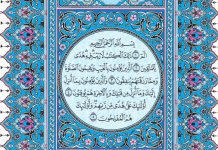 بِسْمِ اللَّهِ الرَّحْمَٰنِ الرَّحِيمِ
الٓمٓ ۝ ذَٰلِكَ الْكِتَابُ لَا رَيْبَ فِيهِ هُدًى
لِلْمُتَّقِينَ ۝ الَّذِينَ يُؤْمِنُونَ بِالْغَيْبِ وَيُقِيمُونَ الصَّلَوٰةَ
وَمِمَّا رَزَقْنَاهُمْ يُنْفِقُونَ ۝ وَالَّذِينَ يُؤْمِنُونَ بِمَا
أُنْزِلَ إِلَيْكَ وَمَا أُنْزِلَ مِنْ قَبْلِكَ وَبِالْآخِرَةِ هُمْ يُوقِنُونَ ۝
أُولَٰئِكَ عَلَىٰ هُدًى مِنْ رَبِّهِمْ وَأُولَٰئِكَ
هُمُ الْمُفْلِحُونَ ۝